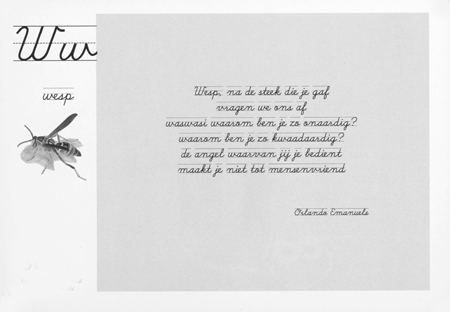 Ww
wesp
Wesp, na de steek die je gaf
vragen we ons af
waswasi waarom ben je zo onaardig?
waarom ben je zo kwaadaardig?
de angel waarvan jij je bedient
maakt je niet tot mensenvriend
Orlando Emanuels